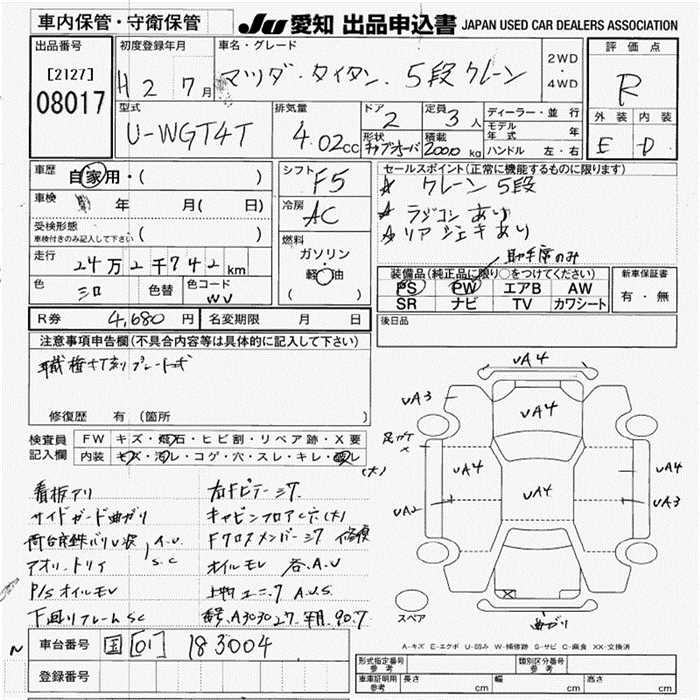 車内保管・守衛保管
JU 愛知 出品申込書 JAPAN USED CAR DEALERS ASSOCIATION
出品番号
[2127]
08017
初度登録年月
H 2 7月
車名・グレード
マツダ・タイタン 5段クレーン
2WD
・
4WD
評価点
R
外装 内装
E D
型式
U-WGT4T
排気量
4.02cc
ドア
2
形状
定員
3人
積載
2000kg
ディーラー・並行
モデル年式 年
ハンドル 左・右
車歴
自家用・( )
車検
年 月( 日)
受検形態
車検付きのみ記入して下さい ( )
走行
24万2千742km
色
シロ
色替
色コード
WV
シフト
F5
冷房
AC
燃料
ガソリン
軽油
( )
セールスポイント(正常に機能するものに限ります)
☆ クレーン 5段
☆ ラジコンあり
☆ リアジャッキあり
助手席のみ
装備品(純正品に限り○をつけてください)
PS PW エアB AW
SR ナビ TV カワシート
新車保証書
有・無
R券 4,680円
名変期限 月 日
後日品
注意事項申告欄(不具合内容等は具体的に記入して下さい)
職権打刻プレート
修復歴 有(箇所
検査員記入欄
FW キズ・飛石・ヒビ割・リペア跡・X要
内装 キズ・汚レ・コゲ・穴・スレ・キレ・破レ
(大)
看板アリ
サイドガード曲がり
A.U.
S.C
アオリ・トリイ
P/Sオイルモレ
下廻りフレームSC
キャビンフロアC穴(大)
Fクロスメンバー
修復
オイルモレ
A.U.S.
A303027
90.7
UA4
UA3
UA4
UA4
UA4
UA2
UA4
UA3
スペア
曲がり
A-キズ E-エクボ U-凹み W-補修跡 S-サビ C-腐食 XX-交換済
N
車台番号
国[01] 183004
登録番号
形式指定番号
参考
類別区分番号
参考
車庫証明用
参考
長さ cm
幅 cm
高さ cm